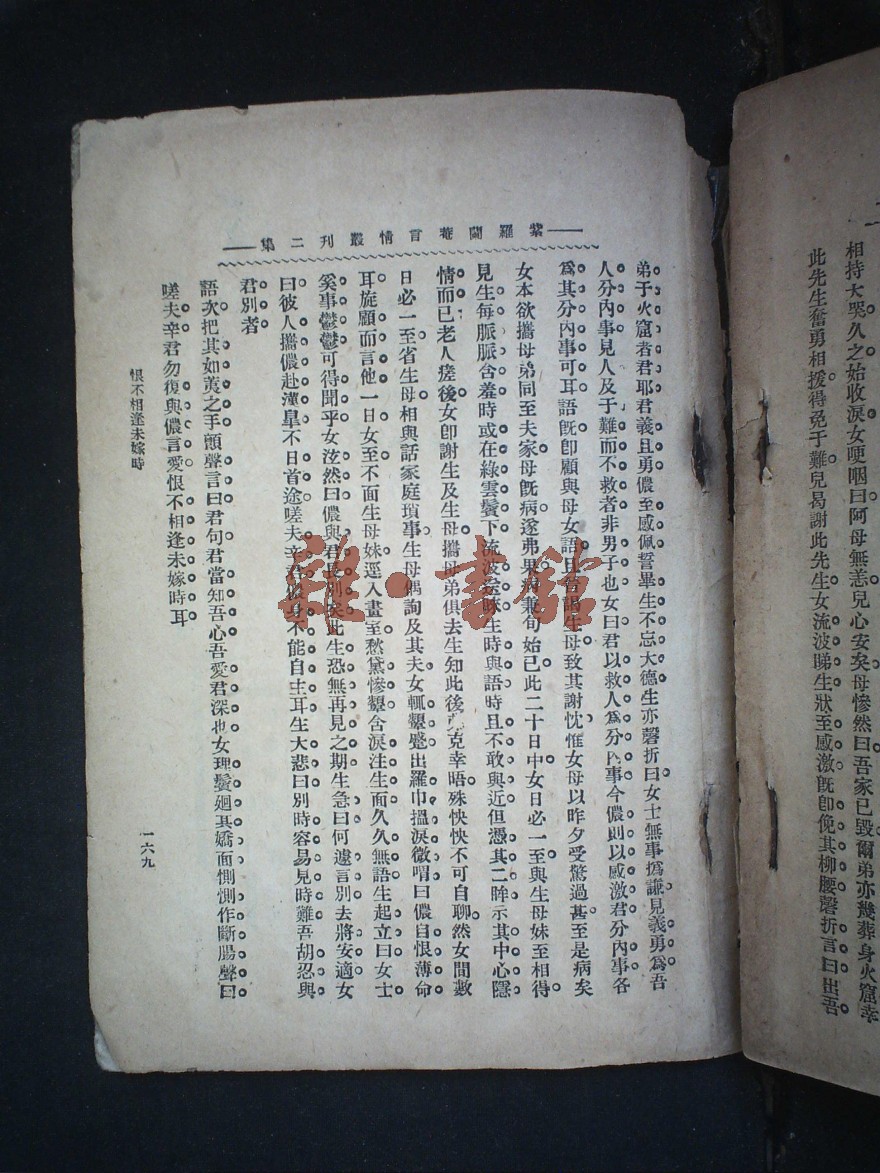 相持大哭久之始收淚女哽咽曰阿母無恙兒心安矣母慘然曰吾家已毀爾弟亦幾葬身火窟幸
此先生奮勇相援得免于難兒曷謝此先生女流波睇生狀至感激旣卽俛其柳腰磬折言曰出吾
紫羅蘭菴言情叢刊二集
弟于火窟者君耶君義且勇儂至感佩誓畢生不忘大德生亦磬折曰女士無事撝謙見義勇爲吾
人分內事見人及于難而不救者非男子也女曰君以救人爲分內事今儂則以感激君分內事各
爲其分內事可耳語旣卽顧與母女語曰謁生母致其謝忱惟女母以昨夕受驚過甚至是病矣
女本欲攜母弟同至夫家母旣病遂弗果病兼旬始已此二十日中女日必一至與生母妹至相得
見生每脈脈含羞時或在綠雲鬟下流波送睞生時與語時且不敢與近但憑其二眸示其中心隱
情而已老人瘥後女卽謝生及生母攜母弟俱去生知此後克幸晤殊怏怏不可自聊然女間數
日必一至省生母相與話家庭瑣事生母偶詢及其夫女輒顰蹙出羅巾搵淚微喟曰儂自恨薄命
耳旋顧而言他一日女至不面生母妹逕入畫室愁黛慘顰含淚注生面久久無語生起立曰女士
奚事鬱鬱可得聞乎女泫然曰儂與君長別矣此生恐無再見之期生急曰何遽言別去將安適女
曰彼人攜儂赴潼皐不日首途嗟夫辛君儂身不能自主耳生大悲曰別時容易見時難吾胡忍與
君別者
語次把其如荑之手顫聲言曰君句君當知吾心吾愛君深也女理鬢廻其嬌面惻惻作斷腸聲曰
嗟夫辛君勿復與儂言愛恨不相逢未嫁時耳
恨不相逢未嫁時
一六九
雜·書館